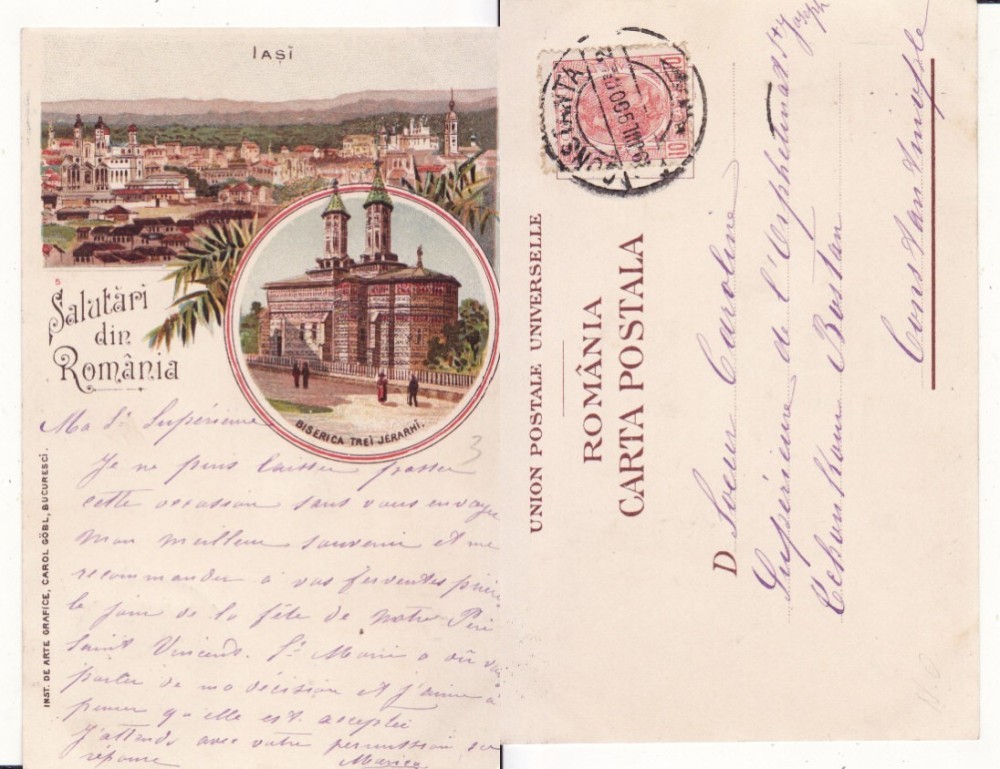 IAȘI
Salutări
din
România
BISERICA TREÏ JERARHÏ.
INST. DE ARTE GRAFICE, CAROL GÖBL, BUCURESCI.
3
Ma Sr Supérieure
Je ne puis laisser passer
cette occasion sans vous envoyer
mon meilleur souvenir et me
recommander à vos ferventes prière
le jour de la fête de notre Père
Saint Vincent. Sr Marie a dû vous
parler de ma décision et j'aime à
penser qu'elle est acceptée
J'attends avec votre permission
réponse
Marica
CONSTANTA
UNION POSTALE UNIVERSELLE
ROMÂNIA
CARTA POSTALA
D Soeur Caroline
Supérieure de l'Orphelinat St Joseph
Tchoukour Bostan
Constantinople